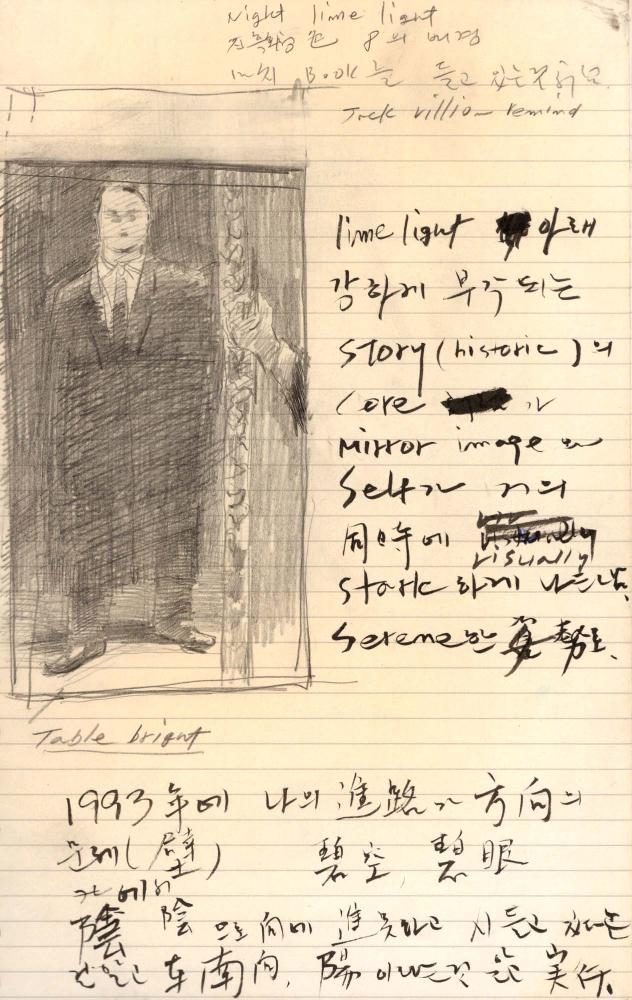 Night lime light
배경
마치 Book 늘 들고 있는것 처럼.
Jack villion remind
lime light 아래
강하게 부각되는
story (historic)의
core 가
mirror image 와
self가 거의
同時에 visually
stark 하게 나타남.
serene한 姿勢로.
Table bright
1993年에 나의 進路가 方向의
문제(壁) 碧空, 碧眼
陰 陰으로 向 進못하고 시들고 있다는
南向, 陽이라는것 을 実行.